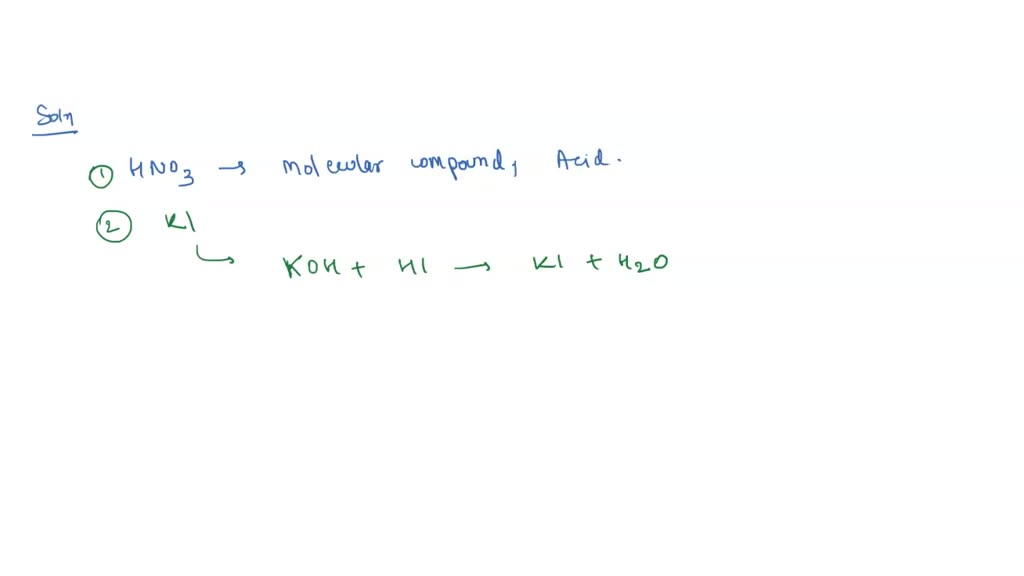 Soln
① HNO3 → molecular compound, Acid.
② KI
KOH + HI → KI + H2O